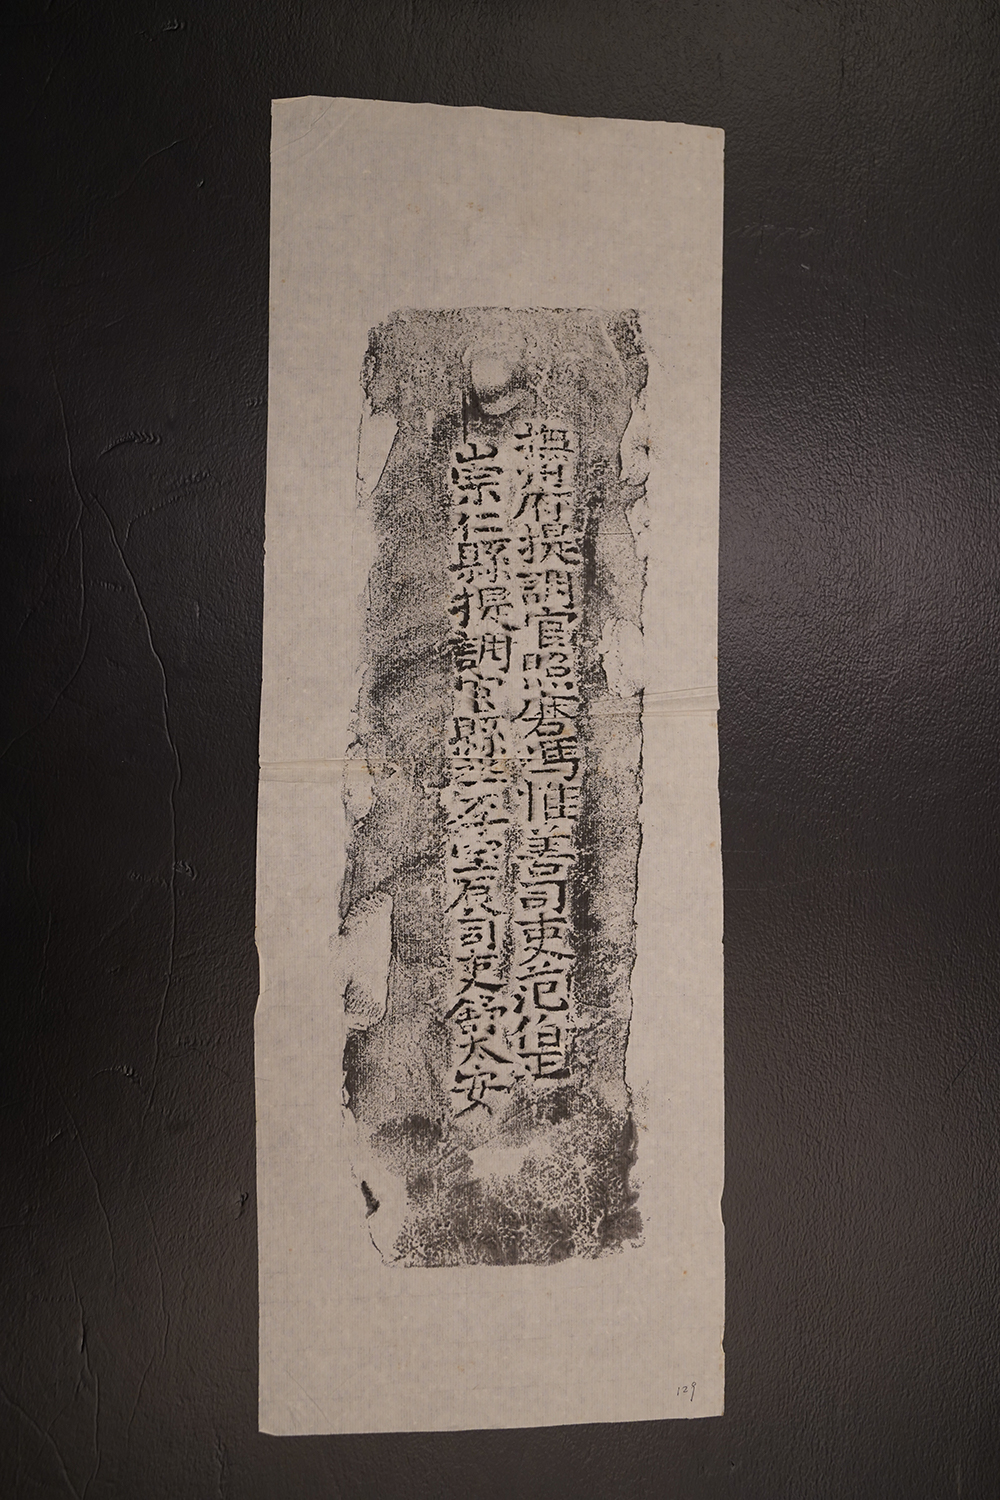 撫州府提調官照磨馮惟善司吏范伯正
崇仁縣提調官縣丞司吏舒太安
129